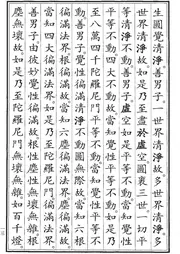 生圓覺清淨善男子一世界清淨故多世界清淨多
世界清淨故如是乃至盡於虛空圓裹三世一切平
等清淨不動善男子虛空如是平等不動當知覺性
平等不動四大不動故當知覺性平等不動如是乃
至八萬四千陀羅尼門平等不動當知覺性平等不
動善男子覺性徧滿清淨不動圓無際故當知六根
徧滿法界根徧滿故當知六塵徧滿法界塵徧滿故
當知四大徧滿法界如是乃至陀羅尼門徧滿法界
善男子由彼妙覺性徧滿故根性塵性無壞無雜根
塵無壞故如是乃至陀羅尼門無壞無雜如百千燈